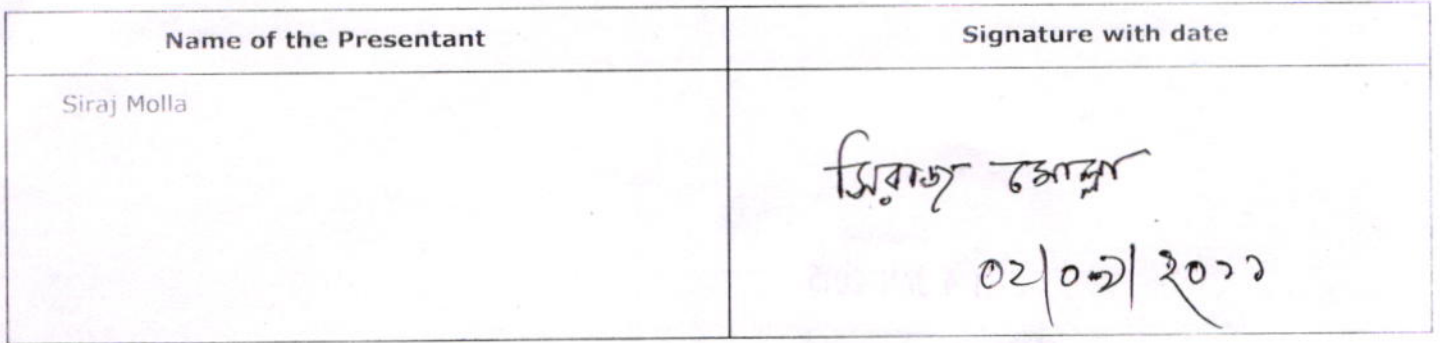 Name of the Presentant
Signature with date
Siraj Molla
সিরাজ মোল্লা
০২|০৩|২০১১